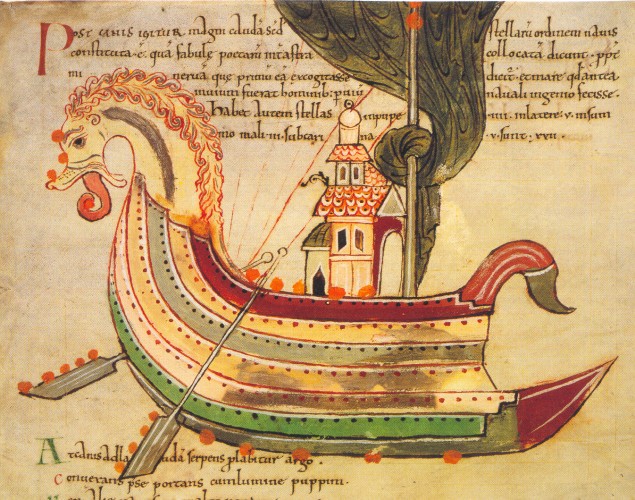 Post canis igitur magni caudā sed stellarū ordinem nauis
constituta ē qua fabule poetarū int astra collocatā dicunt . ppt
mi nerua que primū eā excogitasse dicit et mare qđ antea
fuerat hominib; p uiū nauali ingenio fecisse .
habet autem stellas in puppe .iiii. in latere .v. in sum
mo mali .iii. sub cari na .v. sunt .xxii.
At canis ad caudā serpens plabitur argo .
conuerans pse portans cum lumine puppim .